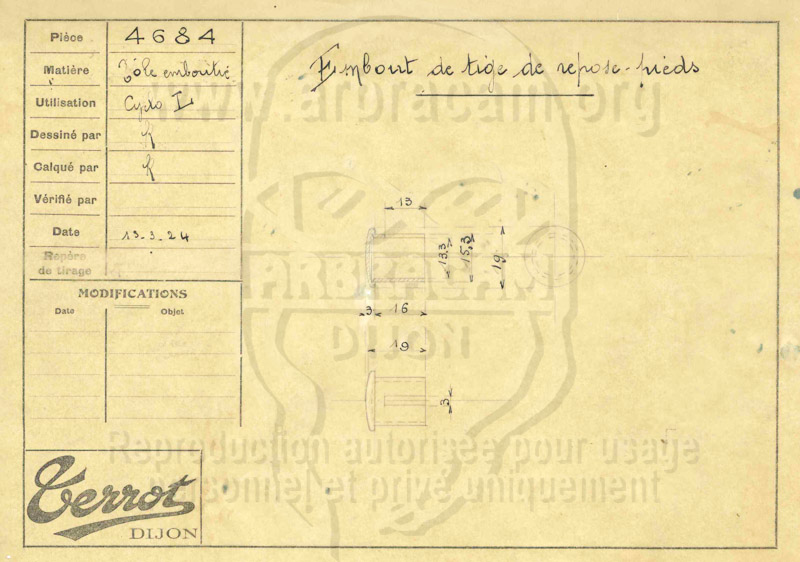 Pièce 4684
Matière Tôle emboutie
Utilisation Cyclo L
Dessiné par K
Calqué par K
Vérifié par
Date 13-3-24
Repère
de tirage
MODIFICATIONS
Date Objet
Terrot
DIJON
Embout de tige de repose-pieds
13
13.3 15.3 19
3 16
19
3
www.arbracam.org
ARBRACAM
DIJON
Reproduction autorisée pour usage
personnel et privé uniquement